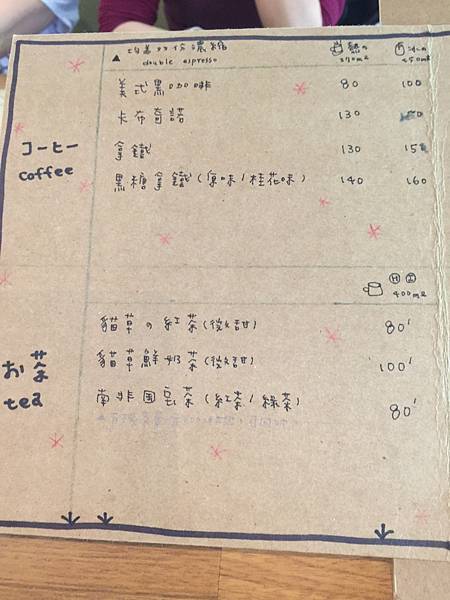 ▲ 均為双份濃縮 熱 冰
double espresso 370ml 450ml
美式黑咖啡 80 100
卡布奇諾 130
コーヒー
coffee
拿鐵 130 15
黑糖拿鐵(原味/桂花味) 140 160
H I
400ml
貓草の紅茶(微甜) 80'
貓草鮮奶茶(微甜) 100'
お茶
tea
南非国宝茶(紅茶/綠茶) 80'